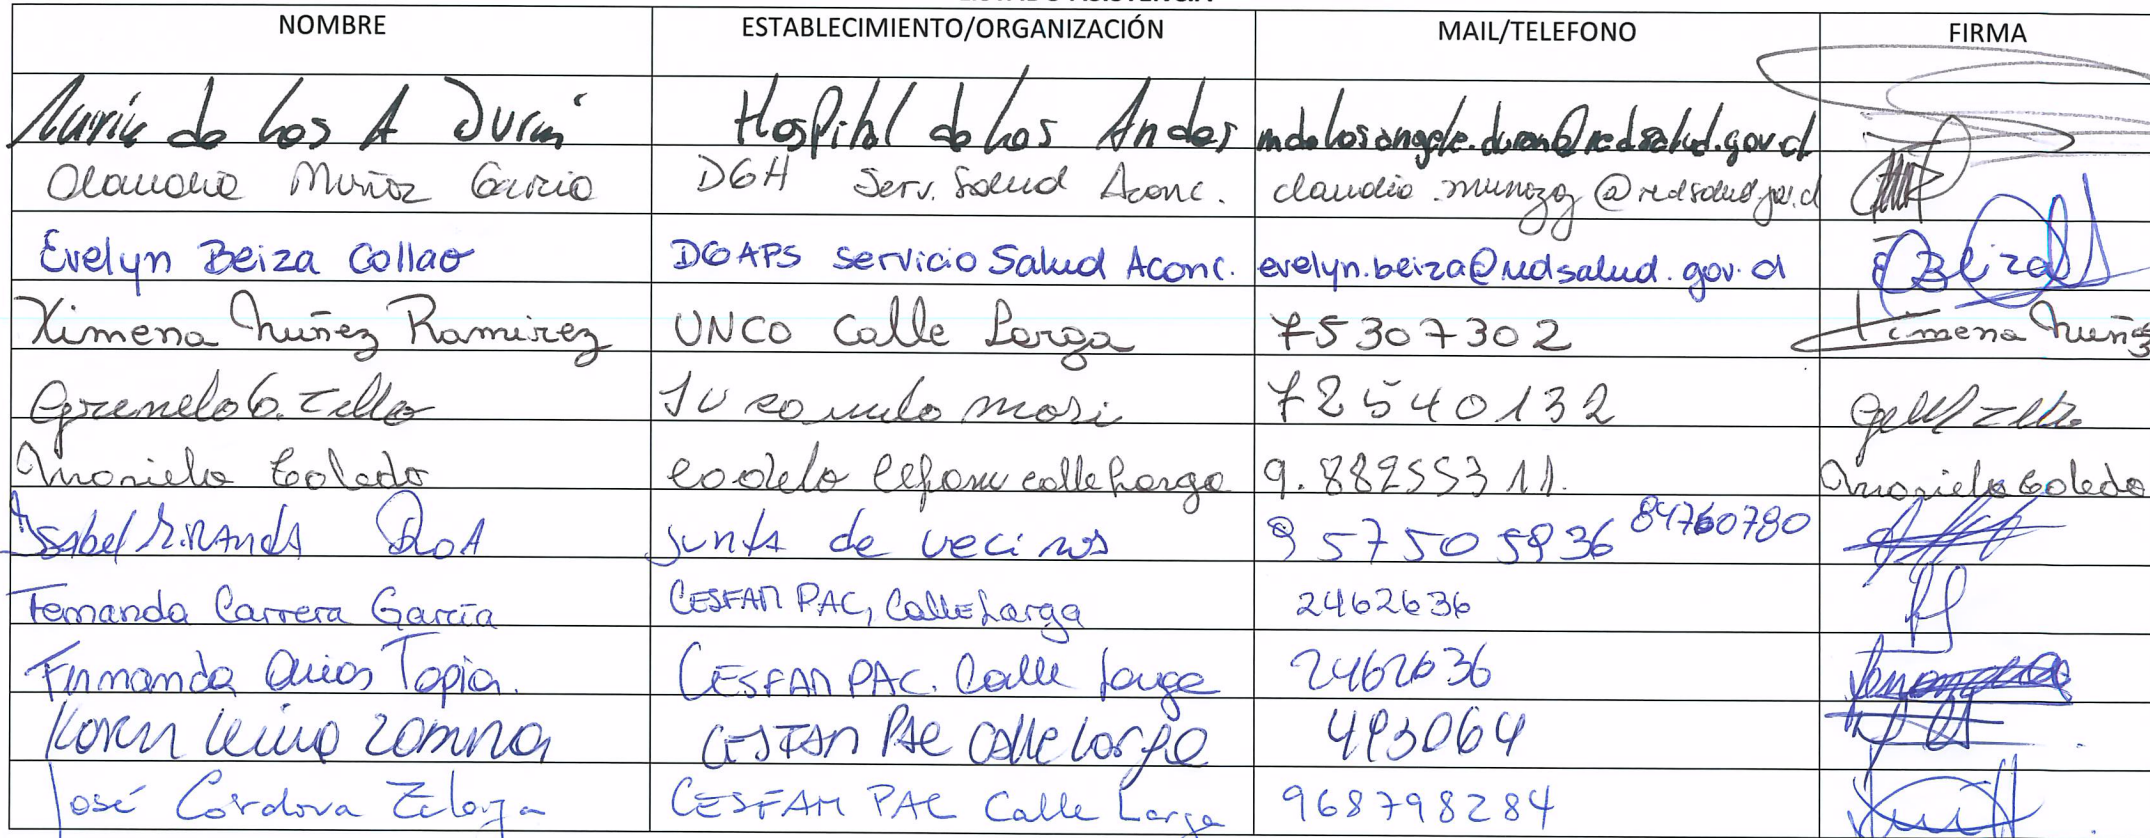 NOMBRE ESTABLECIMIENTO/ORGANIZACIÓN MAIL/TELEFONO FIRMA
María de Los A Durán Hospital de Los Andes mdelosangele.duran@redsalud.gov.cl
Claudia Muñoz García DGH Serv. Salud Aconc. claudia.munozg@redsalud.gov.cl
Evelyn Beiza Collao DGAPS Servicio Salud Aconc. evelyn.beiza@redsalud.gov.cl EBeiza
Ximena Nuñez Ramirez UNCO Calle Larga 75307302 Ximena Nuñez
72540132
Mariela Toledo calle Larga 9.88255311. Mariela Toledo
Isabel Miranda Roa Junta de vecinos 84760780
Fernanda Carrera García CESFAM PAC, Calle Larga 2462636
Fernanda Tapia. CESFAM PAC. Calle Larga 2462636
Karen CESFAM PAC Calle Larga 493064
José Córdova CESFAM PAC Calle Larga 968798284